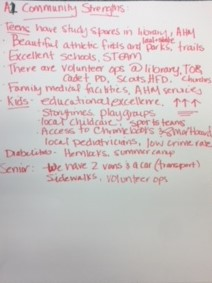 A2 Community Strengths
Teens have study spaces in library, AHM
local + state
• Beautiful athletic fields and parks, trails
Excellent schools, STEAM
• There are volunteer ops @ library, TOB,
cadet PD, Scouts, HFD, Churches
• Family medical facilities, AHM services
Kids: educational excellence, ↑↑↑
Storytimes, playgroups
• local childcare, sports teams
• Access to Chromebooks & Smartboards
local pediatricians, low crime rate
Disabilities: Hemlocks, summer camp
Senior: We have 2 vans & a car (transport)
Sidewalks, volunteer ops